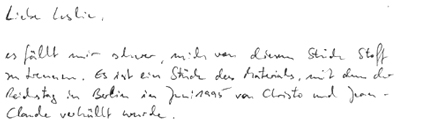 Liebe Leslie,
es fällt mir schwer, mich von diesem Stück Stoff
zu trennen. Es ist ein Stück des Materials, mit dem der
Reichstag in Berlin im Juni 1995 von Christo und Jean-
Claude verhüllt wurde.